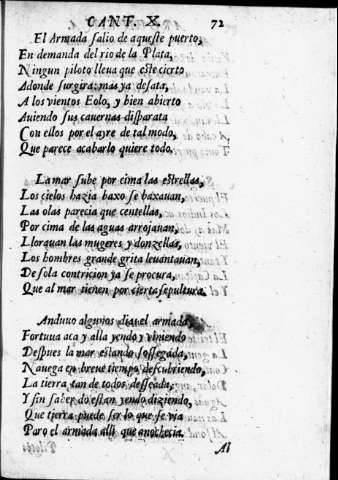 CANT. X. 72
El Armada salio de aqueste puerto,
En demanda del rio de la Plata,
Ningun piloto lleua que este cierto
Adonde surgira: mas ya desata,
A los vientos Eolo, y bien abierto
Auiendo sus cauernas disparata
Con ellos por el ayre de tal modo,
Que parece acabarlo quiere todo.
La mar sube por cima las estrellas,
Los cielos hazia baxo se baxauan,
Las olas parecia que centellas,
Por cima de las aguas arrojauan,
Llorauan las mugeres y donzellas,
Los hombres grande grita leuantauan,
De sola contricion ya se procura,
Que al mar tienen por cierta sepultura.
Anduuo algunos dias el armada,
Fortuua aca y alla yendo y viniendo
Despues la mar estando sossegada,
Nauega en breue tiempo descubriendo,
La tierra tan de todos desseada,
Y sin saber do estan yendo diziendo,
Que tierra puede ser lo que se via
Paro el armada alli que anochecia.
Al